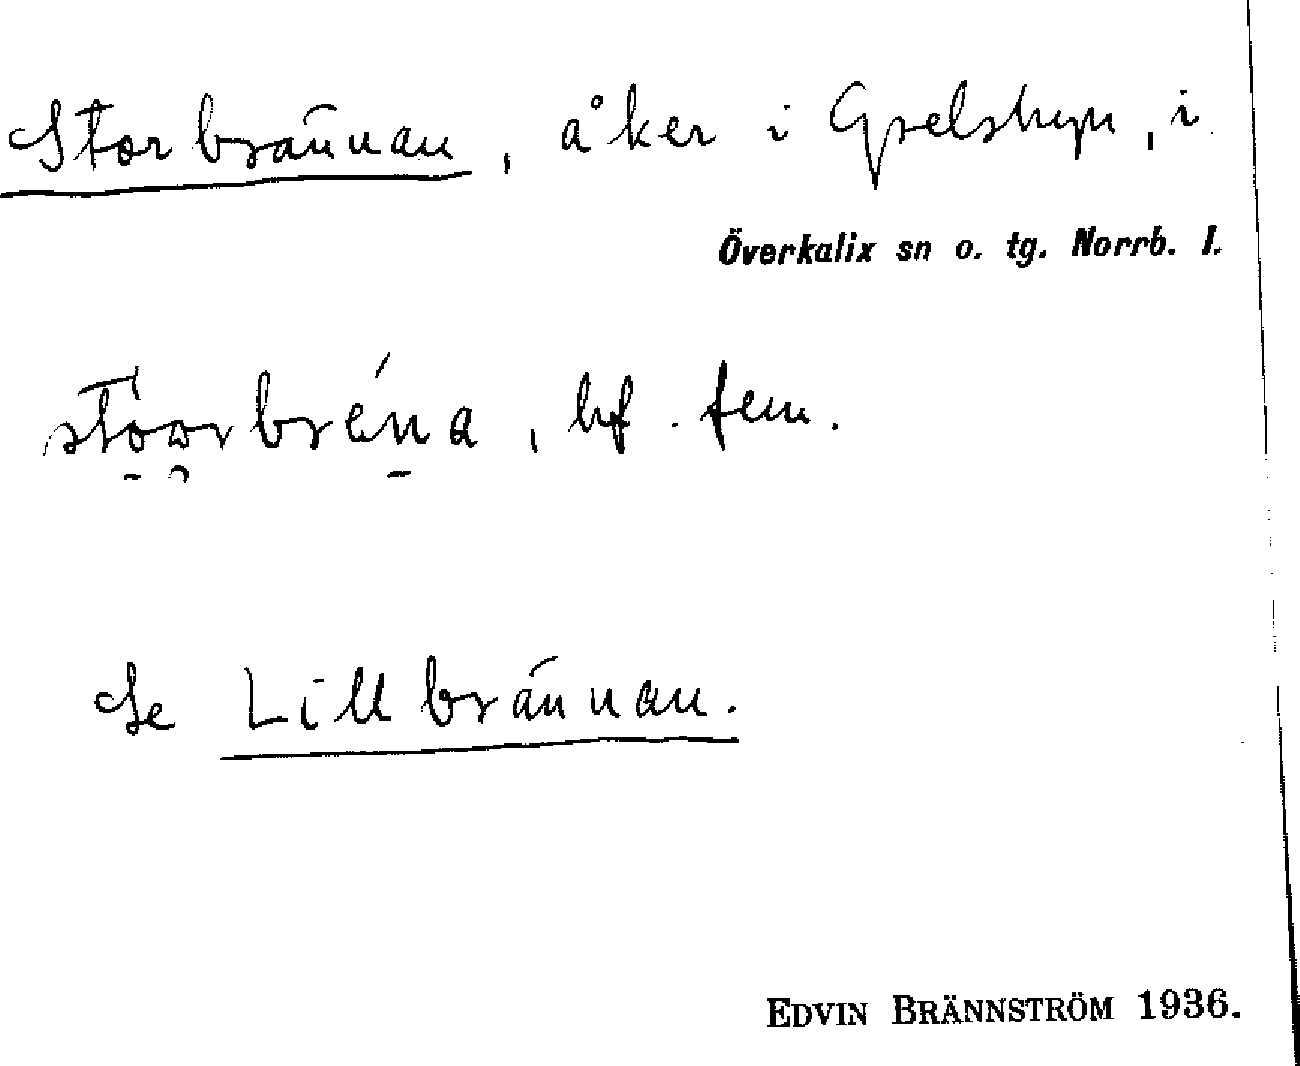 Storbrännan, åker i Grelsbyn, i
Överkalix sn o. tg. Norrb. l.
stöorbréna, bf. fem.
Se Lillbrännan.
EDVIN BRÄNNSTRÖM 1936.